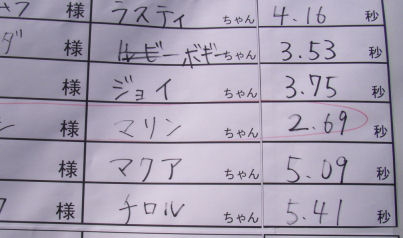 様 ラスティ ちゃん 4.16 秒
ダ 様 ボギー ちゃん 3.53 秒
様 ジョイ ちゃん 3.75 秒
様 マリン ちゃん 2.69 秒
様 マクア ちゃん 5.09 秒
様 チロル ちゃん 5.41 秒